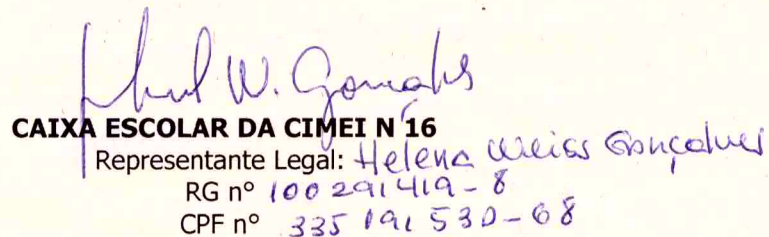 W. Gonçalves
CAIXA ESCOLAR DA CIMEI N 16
Representante Legal: Helena Weiss Gonçalves
RG nº 100291419-8
CPF nº 335 191 530-68